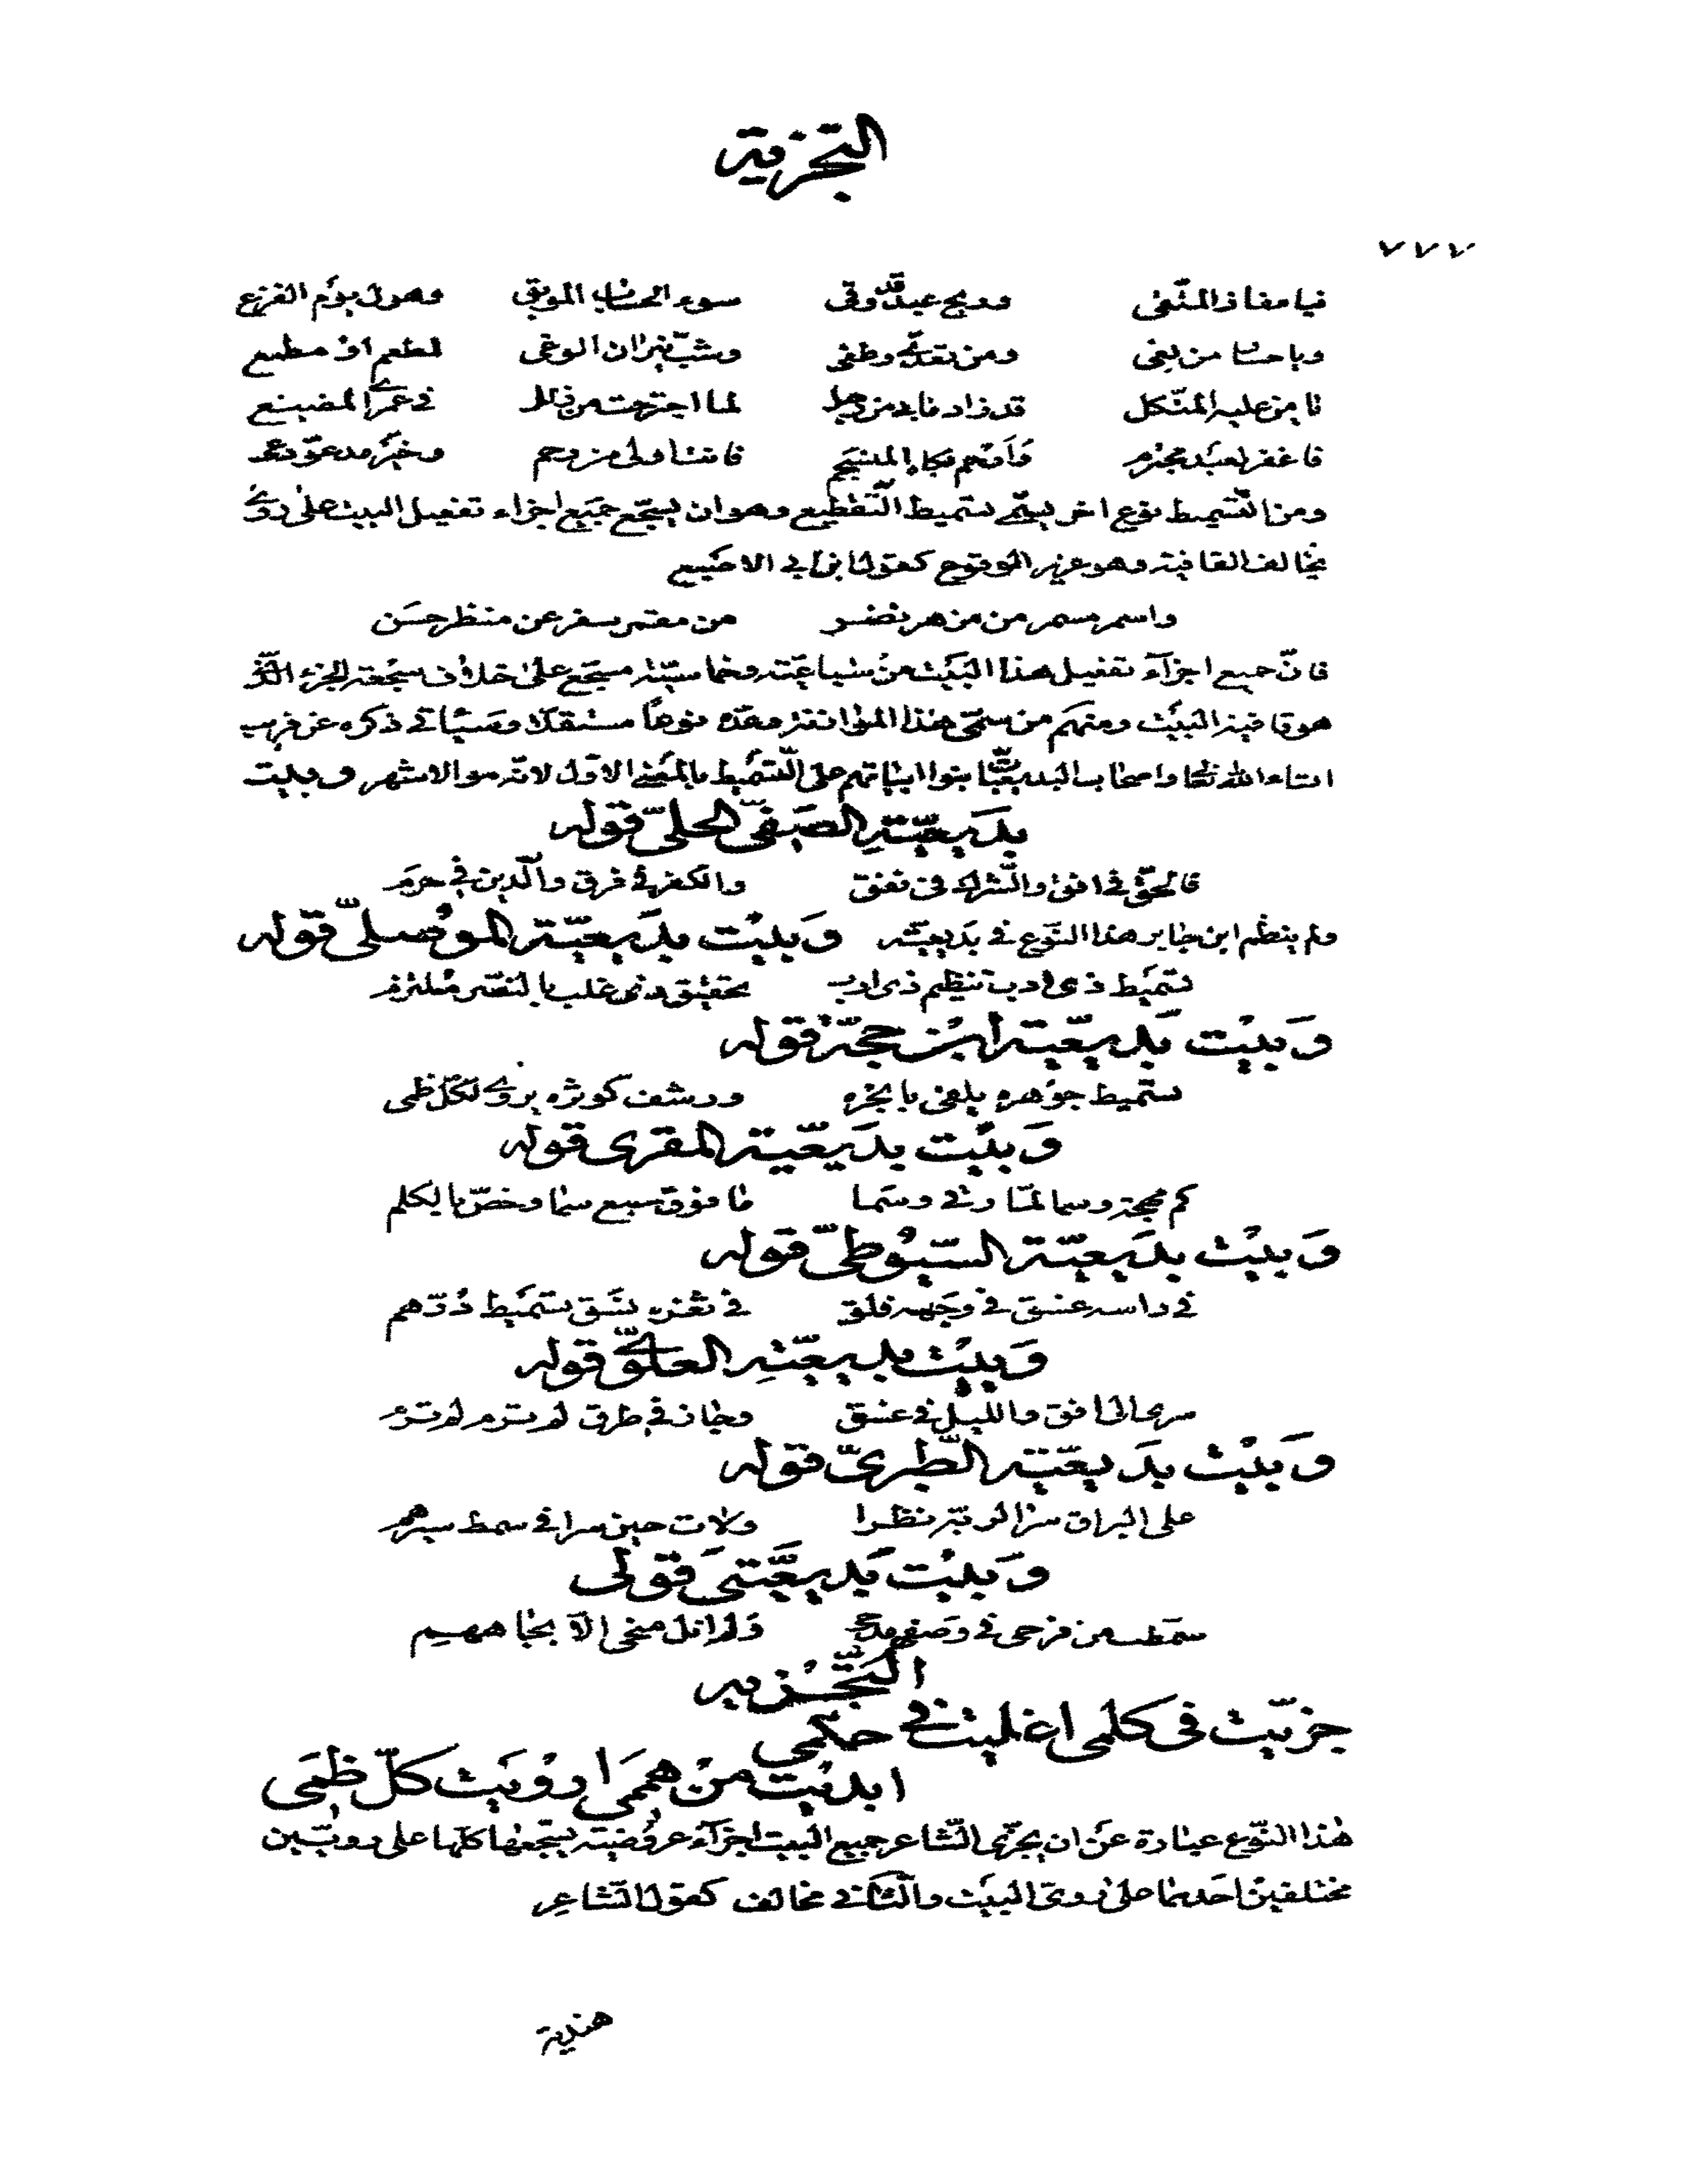 التجزية
٧٧٧
فيا مفاز المتّقى وربح عبد قد وقى سوء الحساب الموبق وهول يوم الفزع
ويا خسار من بغى ومن تعدّى وطغى وشبّ نيران الوغى لمطعم او مطمع
يا من عليه المتّكل قد زاد ما بي من وجل لما اجترحت من زلل في عمري المضيّع
فاغفر لعبد مجترم وارحم بكاه المنسجم فانت اولى من رحم وخير مدعوّ دعى
ومن التّسميط نوع اخر يسمّى تسميط التّقطيع وهو ان يسجّع جميع اجزاء تفعيل البيت على روىّ
يخالف القافية وهو عزيز الوقوع كقول ابن ابى الاصبع
واسمر مسمر من مزهر نضر من مقمر مسفر عن منظر حسن
فانّ جميع اجزآء تفعيل هذا البيت من سباعيّته وخماسيّته مسجّع على خلاف سجعة الجزء الّذى
هو قافية البيت ومنهم من سمّى هذا الموازنة وعدّه نوعاً مستقلا وسياتى ذكره عن قريب
انشاء الله تعالى واصحاب البديعيّات بنوا ابياتهم على التّسميط بالمعنى الاوّل لانّه هو الاشهر وبيت
بديعيّة الصّفىّ الحلىّ قوله
فالحقّ فى افق والشّرك فى نفق والكفر فى فرق والدّين فى حرم
ولم ينظم ابن جابر هذا النّوع فى بديعيّته وبيت بديعيّة الموصلىّ قوله
تسميط ذى ادب تنظيم ذى ارب بتحقيق ذى غلب بالنّصر ملتزم
وبيت بديعيّة ابن حجّة قوله
تسميط جوهره يلفى بابحره ورشف كوثره يروى لكلّ ظمى
وبيت بديعيّة المقرى قوله
كم مهجة وسما لمّا رقى وسما ما فوق سبع سما وخصّ بالكلم
وبيت بديعيّة السّيوطىّ قوله
فى راسه غسق فى وجهه فلق فى ثغره نسق تسميط درّهم
وبيت بديعيّة العلوىّ قوله
سرى الى افق والليل فى غسق وجاز فى طرق لم ترم لم ترم
وبيت بديعيّة الطّبرىّ قوله
على البراق سرا لربّه نظرا ولات حين سرا فى سمط سيرهم
وبيت بديعيّتى قولى
سمّطت من فرحى فى وصفهم مدحى ولم انل منحى الّا بجاههم
التّجزية
جزّيت فى كلمى اغليت فى حكمى
ابديت من هممى ارويت كلّ ظمى
هذا النّوع عبارة عن ان يجزّى الشّاعر جميع البيت اجزآء عروضيّة يسجّعها كلّها على رويّين
مختلفين احدهما على روىّ البيت والثّانى مخالف كقول الشّاعر
هندية